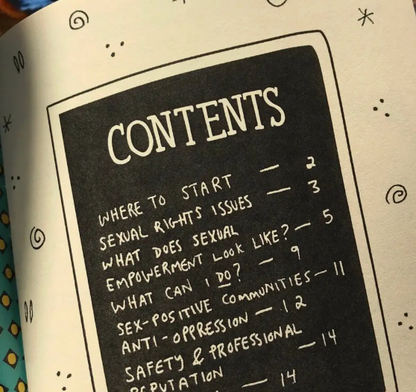 CONTENTS
WHERE TO START — 2
SEXUAL RIGHTS ISSUES — 3
WHAT DOES SEXUAL
EMPOWERMENT LOOK LIKE? — 5
WHAT CAN I DO? — 9
SEX-POSITIVE COMMUNITIES — 11
ANTI-OPPRESSION — 12
SAFETY & PROFESSIONAL
REPUTATION — 14
— 14